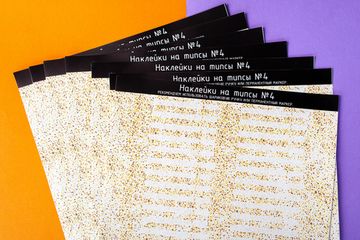 Наклейки на типсы №4
Наклейки на типсы №4
Наклейки на типсы №4
Наклейки на типсы №4
Наклейки на типсы №4
РЕКОМЕНДУЕМ ИСПОЛЬЗОВАТЬ ШАРИКОВУЮ РУЧКУ ИЛИ ПЕРМАНЕНТНЫЙ МАРКЕР